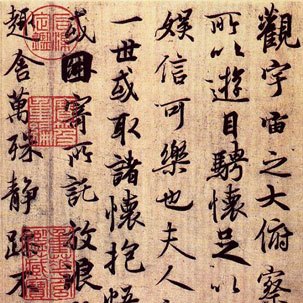 觀宇宙之大俯察
所以遊目騁懷足以
娛信可樂也夫人
一世或取諸懷抱悟
或因寄所託放浪
趣舍萬殊靜躁不